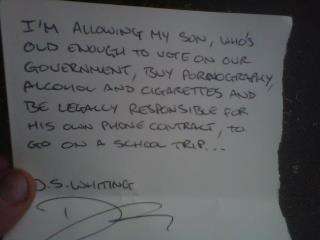 I'M ALLOWING MY SON, WHO'S
OLD ENOUGH TO VOTE ON OUR
GOVERNMENT, BUY PORNOGRAPHY,
ALCOHOL AND CIGARETTES AND
BE LEGALLY RESPONSIBLE FOR
HIS OWN PHONE CONTRACT, TO
GO ON A SCHOOL TRIP...
D.S. WHITING